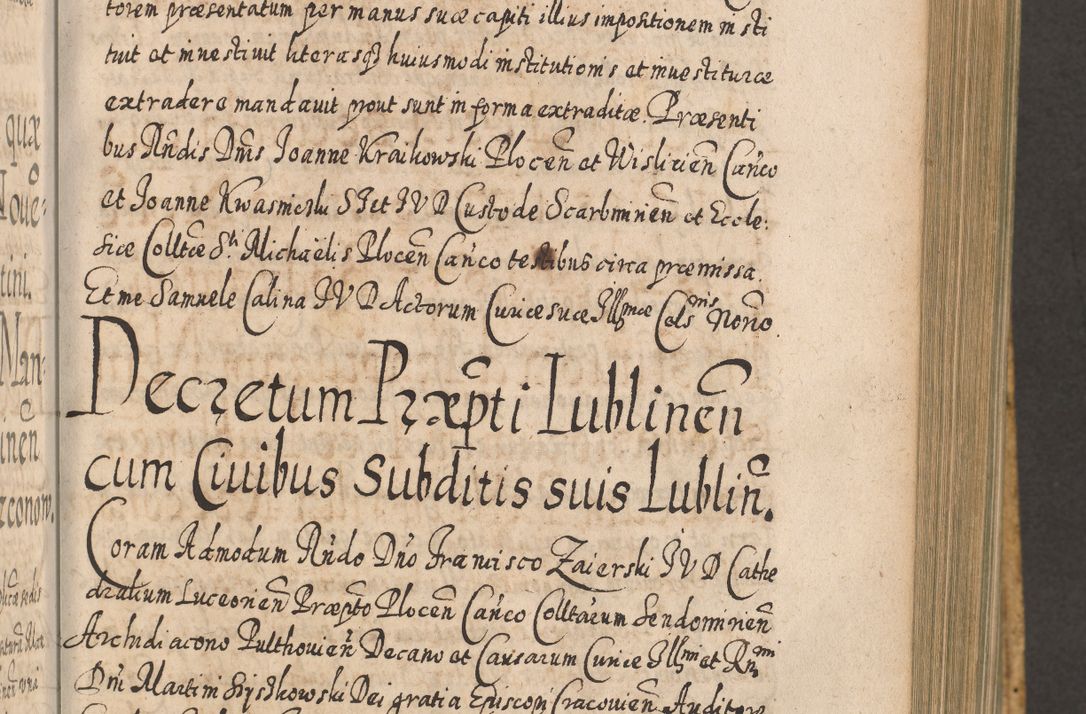 torem præsentatum per manus suæ capiti illius impositionem insti
tuit et inuestiuit literasq huiusmodi institutionis et inuestituræ
extradere mandauit prout sunt in forma extraditæ. Præsenti
bus Rñdis Dñis Ioanne Kraikowski Ploceñ et Wislicieñ Cañco
et Ioanne Kwasnicski S I et I V D Custode Scarbmirieñ et Eccle:
siæ Colltæ Sti Michaëlis Ploceñ Cañco testibus circa præmissa.
Et me Samuele Calina I V D Actorum Curiæ suæ Illmæ Celsnis Norio
Decretum Præpti Lublineñ
cum Ciuibus Subditis suis Lubliñ.
Coram Admodum Rñdo Dño Francisco Zaierski I V D Cathe
dralium Luceorieñ Præpto Ploceñ Cañco Colltarum Sendomirieñ
Archidiacono Pulthouieñ Decano et Causarum Curiæ Illmi et Rmi
Dñi Martini Szyszkowski Dei gratia Episcopi Cracouieñ Auditore
quæ
Noue:
tini.
Man:
inen